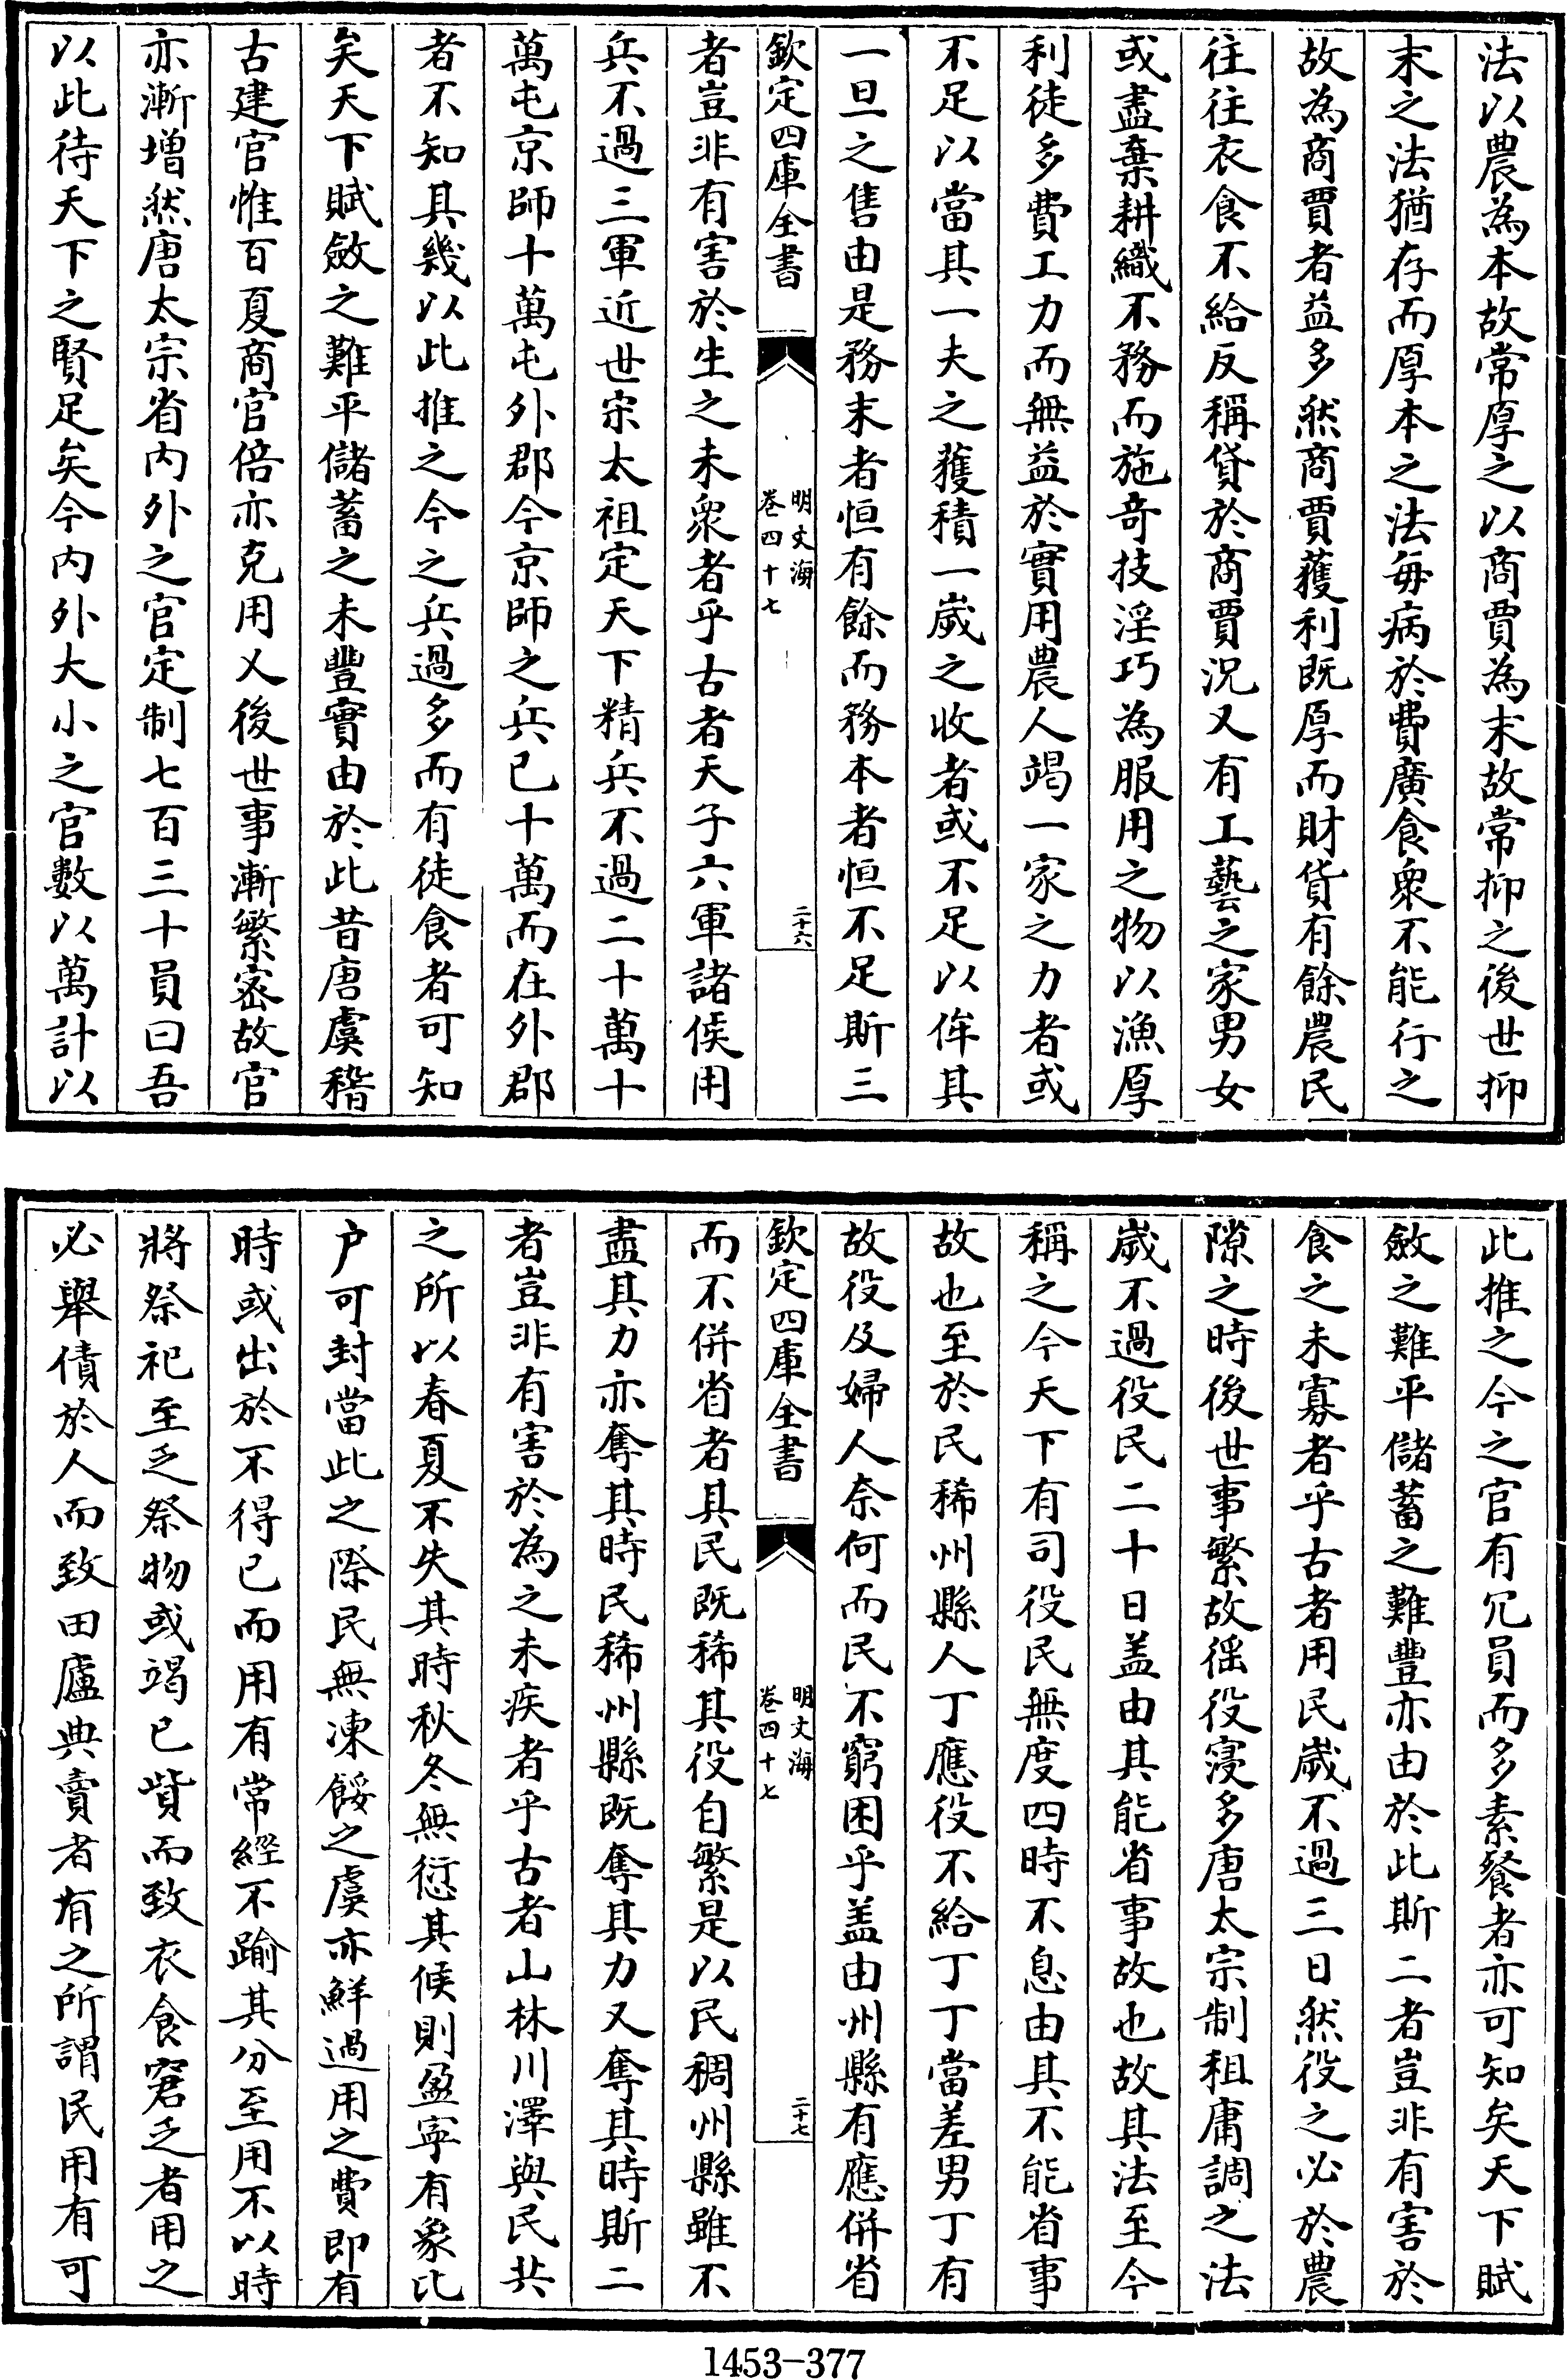 法以農為本故常厚之以商賈為末故常抑之後世抑
末之法猶存而厚本之法每病於費廣食衆不能行之
故為商賈者益多然商賈獲利既厚而財貨有餘農民
往往衣食不給反稱貸於商賈況又有工藝之家男女
或盡棄耕織不務而施竒技淫巧為服用之物以漁厚
利徒多費工力而無益於實用農人竭一家之力者或
不足以當其一夫之獲積一歲之收者或不足以侔其
一旦之售由是務末者恒有餘而務本者恒不足斯三
欽定四庫全書
明文海
卷四十七
二十六
者豈非有害於生之未衆者乎古者天子六軍諸侯用
兵不過三軍近世宋太祖定天下精兵不過二十萬十
萬屯京師十萬屯外郡今京師之兵已十萬而在外郡
者不知其幾以此推之今之兵過多而有徒食者可知
矣天下賦斂之難平儲蓄之未豐實由於此昔唐虞稽
古建官惟百夏商官倍亦克用乂後世事漸繁密故官
亦漸增然唐太宗省內外之官定制七百三十員曰吾
以此待天下之賢足矣今内外大小之官數以萬計以
此推之今之官有冗員而多素餐者亦可知矣天下賦
斂之難平儲蓄之難豐亦由於此斯二者豈非有害於
食之未寡者乎古者用民歲不過三日然役之必於農
隙之時後世事繁故徭役寖多唐太宗制租庸調之法
歲不過役民二十日盖由其能省事故也故其法至今
稱之今天下有司役民無度四時不息由其不能省事
故也至於民稀州縣人丁應役不給丁丁當差男丁有
故役及婦人奈何而民不窮困乎盖由州縣有應併省
欽定四庫全書
明文海
卷四十七
二十七
而不併省者具民既稀其役自繁是以民稠州縣雖不
盡其力亦奪其時民稀州縣既奪其力又奪其時斯二
者豈非有害於為之未疾者乎古者山林川澤與民共
之所以春夏不失其時秋冬無愆其候則盈寧有象比
户可封當此之際民無凍餒之虞亦鮮過用之費即有
時或出於不得已而用有常經不踰其分至用不以時
將祭祀至乏祭物或竭已貲而致衣食窘乏者用之
必舉債於人而致田廬典賣者有之所謂民用有可
1453-377